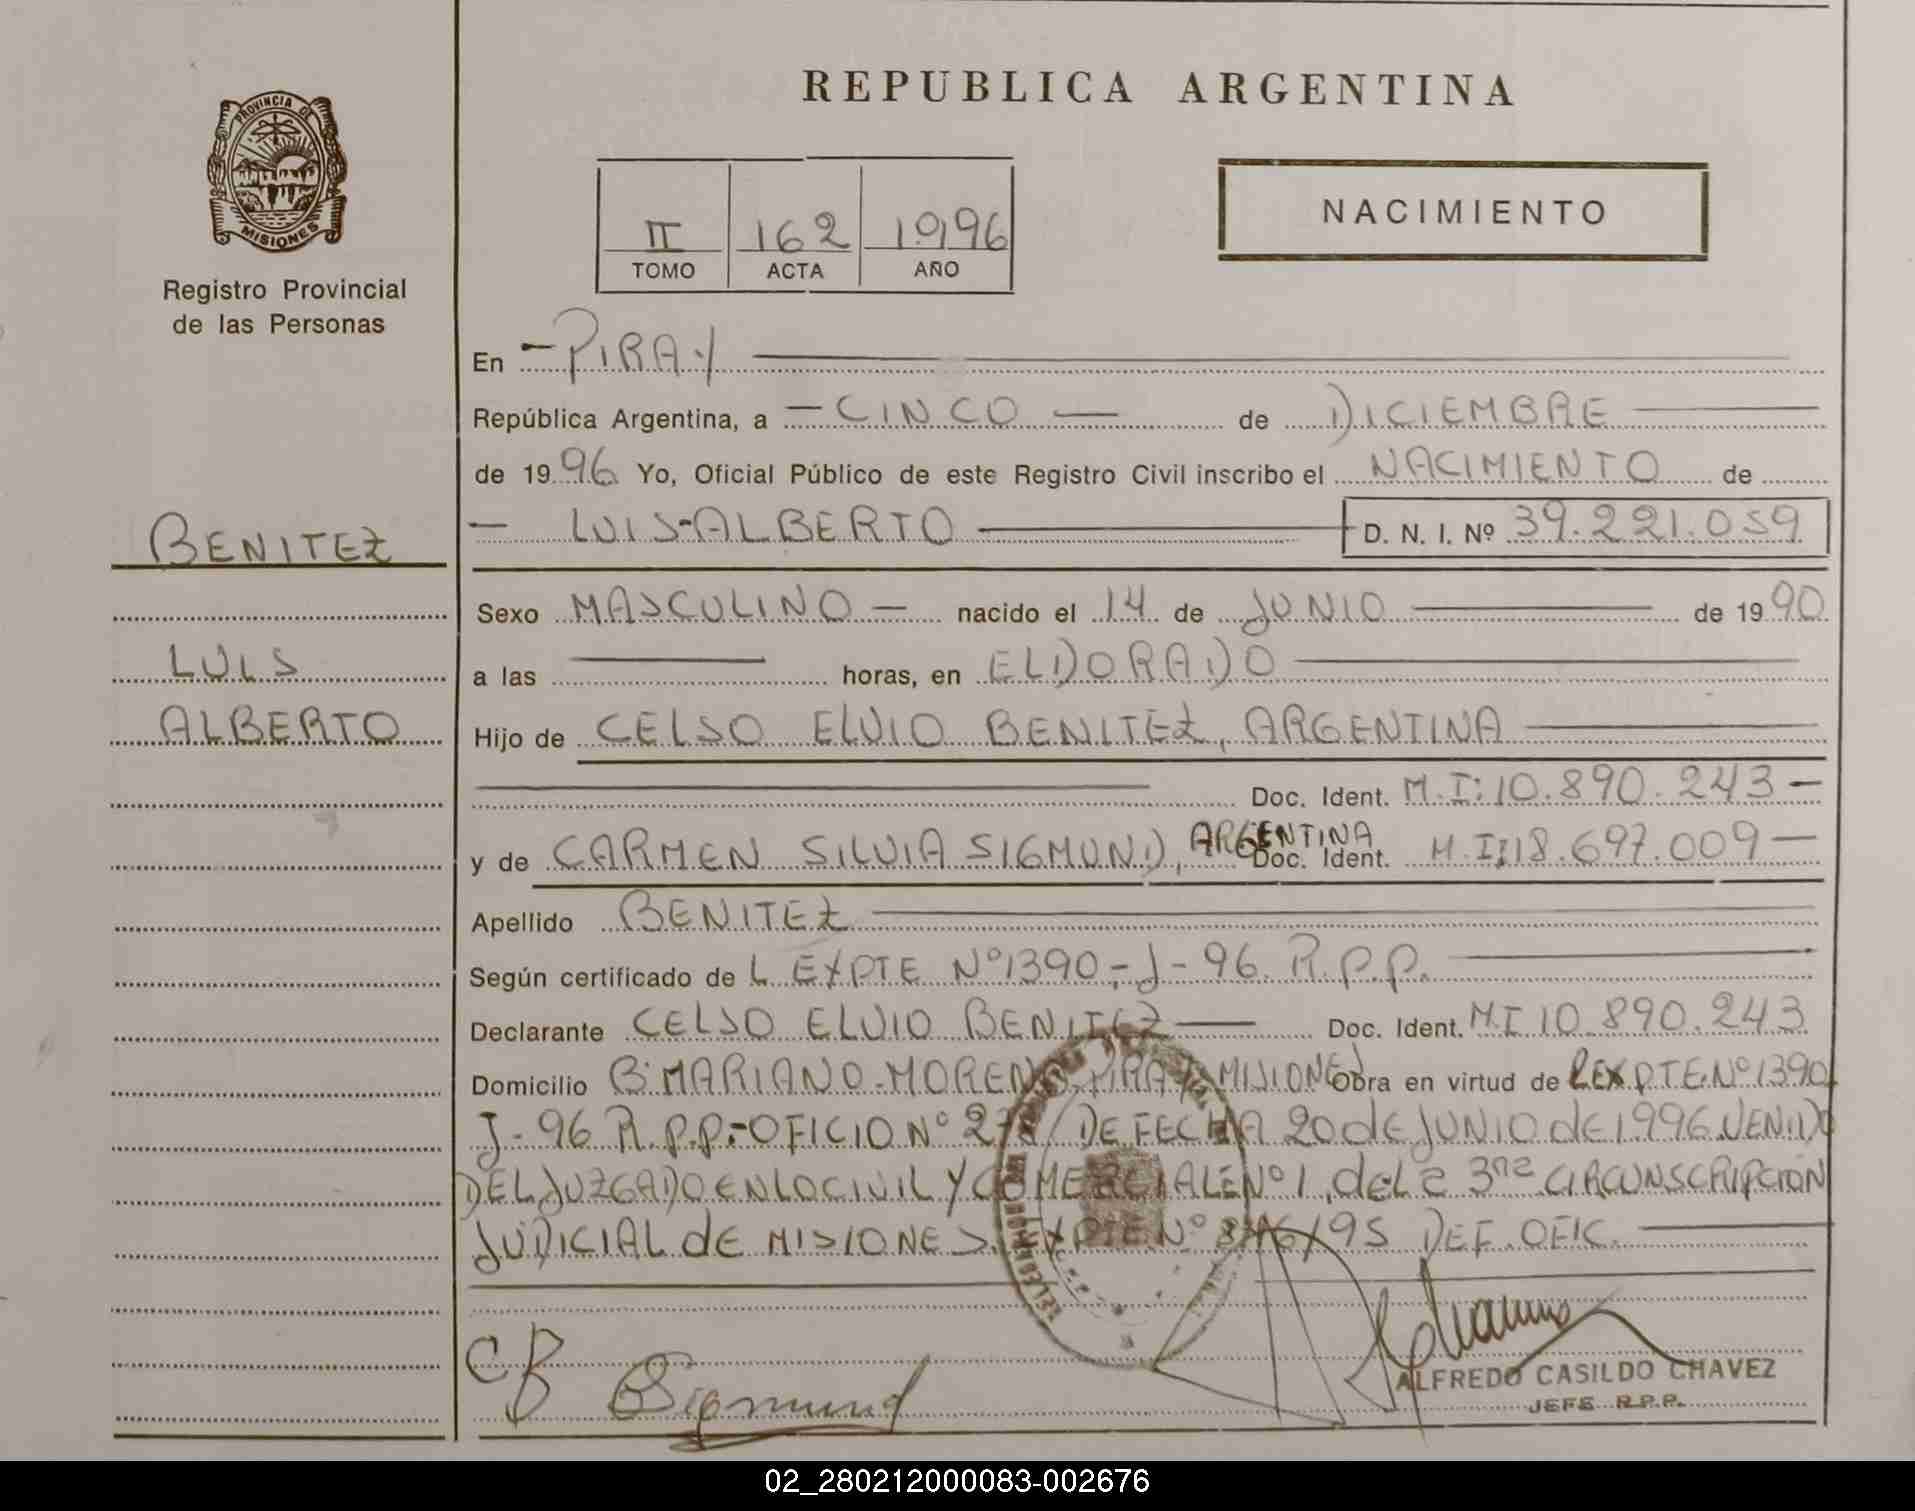 PROVINCIA DE
MISIONES
Registro Provincial
de las Personas
BENITEZ
LUIS
ALBERTO
REPUBLICA ARGENTINA
II 162 1996
TOMO ACTA AÑO
NACIMIENTO
En - PIRAY
República Argentina, a - CINCO - de DICIEMBRE
de 1996 Yo, Oficial Público de este Registro Civil inscribo el NACIMIENTO de
- LUIS-ALBERTO D. N. I. Nº 39.221.059
Sexo MASCULINO - nacido el 14 de JUNIO de 1990
a las horas, en ELDORADO
Hijo de CELSO ELVIO BENITEZ, ARGENTINA
Doc. Ident. M.I: 10.890.243 -
y de CARMEN SILVIA SIGMUND, ARGENTINA Doc. Ident. M.I: 18.697.009 -
Apellido BENITEZ
Según certificado de L. EXPTE Nº 1390-J-96. R.P.P.
Declarante CELSO ELVIO BENITEZ Doc. Ident. M.I 10.890.243
Domicilio Bº MARIANO MORENO PIRAY MISIONES Obra en virtud de L EXPTE Nº 1390
J-96 R.P.P.-OFICIO Nº DE FECHA 20 de JUNIO de 1996 VENIDO
DEL JUZGADO EN LO CIVIL Y COMERCIAL Nº 1, de la 3ra CIRCUNSCRIPCIÓN
JUDICIAL de MISIONES. EXPTE Nº /95 DEF. OFIC.
CB CSigmund
ALFREDO CASILDO CHAVEZ
JEFE R.P.P.
02_280212000083-002676